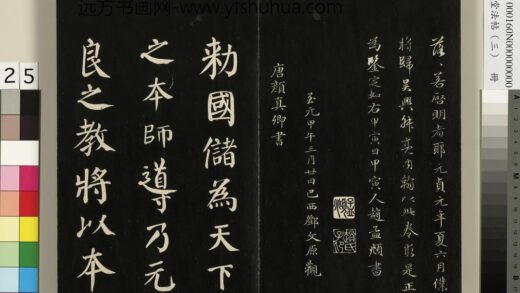 远方书画网-www.yfshuhua.com
000160N000000000
堂法帖（三） 冊
善啓明者耶元貞元年夏六月僕
將歸吴興以此卷求是正
為鑒定如右甲寅日甲寅人趙孟頫書
至元甲午三月廿四日巴西鄧文原觀
唐顏真卿書
勅國儲為天下
之本師導乃元
良之教將以本
25